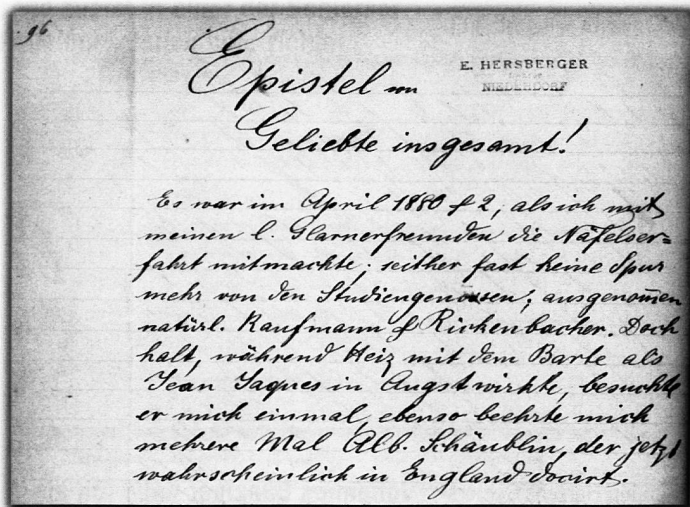 96
Epistel von
E. HERSBERGER
NIEDERDORF
Geliebte insgesamt!
Es war im April 1880 & 2, als ich mit
meinen l. Glarnerfreunden die Näfelser=
fahrt mitmachte; seither fast keine Spur
mehr von den Studiengenossen; ausgenom̄en
natürl. Kaufmann & Rickenbacher. Doch
halt, während Heiz mit dem Barte als
Jean Jaques in Augst wirkte, besuchte
er mich einmal, ebenso beehrte mich
mehrere Mal Alb. Schäublin, der jetzt
wahrscheinlich in England docirt.